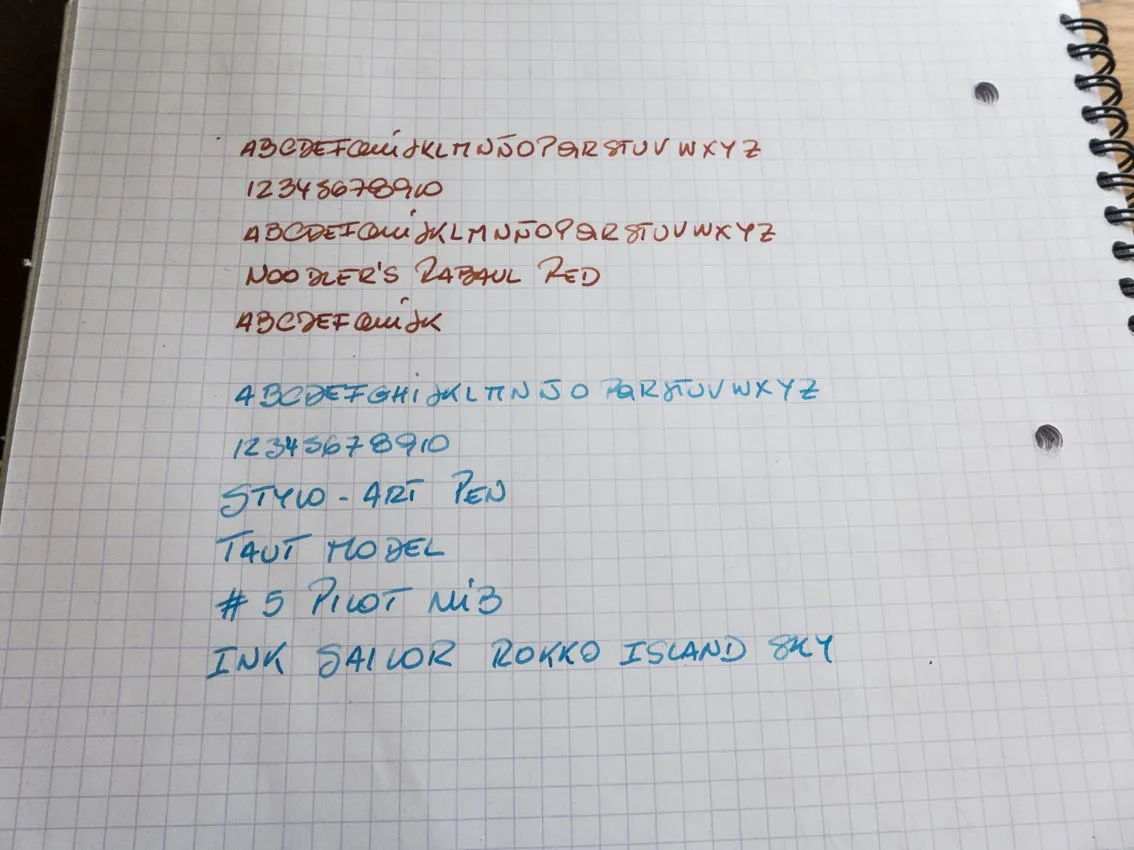 ABCDEFGHiJKLMNÑOPQRSTUVWXYZ
12345678910
ABCDEFGHiJKLMNÑOPQRSTUVWXYZ
NOODLER'S RABAUL RED
ABCDEFGHiJK
ABCDEFGHiJKLMNÑO PQRSTUVWXYZ
12345678910
STYLO-ART PEN
TAUT MODEL
# 5 PILOT NiB
INK SAILOR ROKKO ISLAND SKY